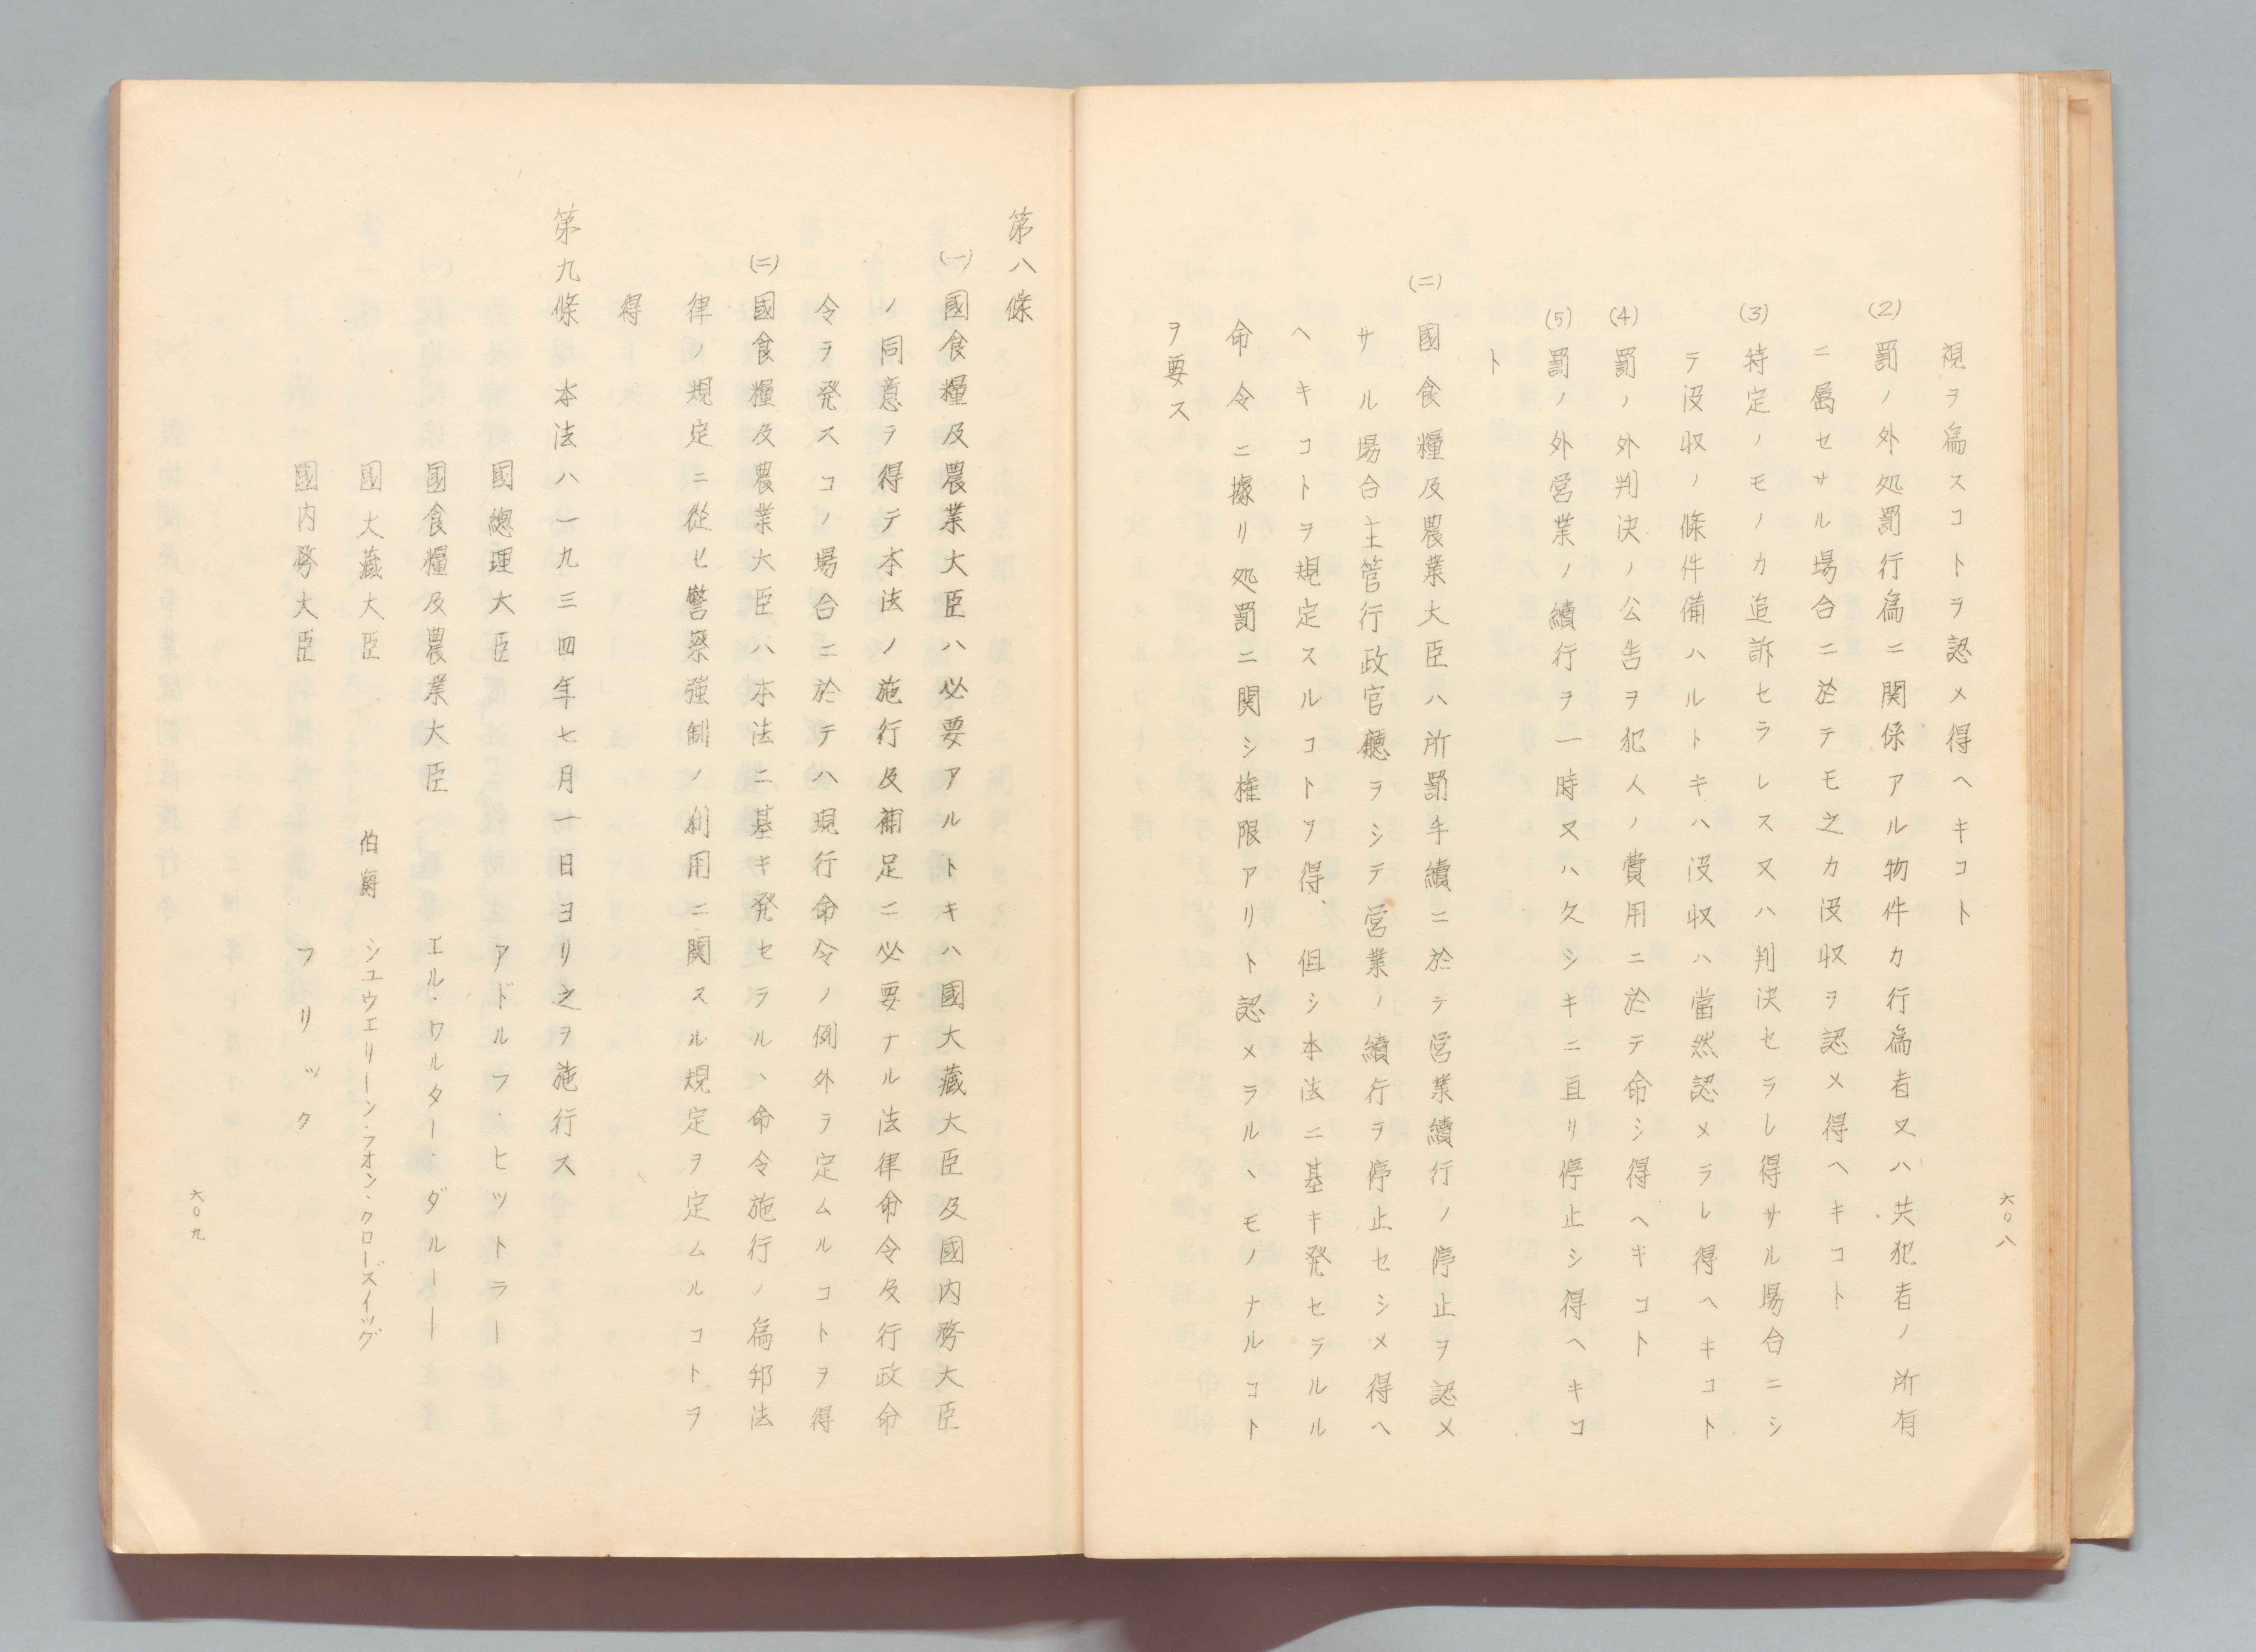 視ヲ為スコトラ認メ得ヘキコト
(2) 罰ノ外処罰行為ニ関係アル物件カ行為者又ハ共犯者ノ所有
ニ属セサル場合ニ於テモ之カ没収ヲ認メ得ヘキコト
(3) 特定ノモノカ追訴セラレス又ハ判決セラレ得サル場合ニシ
テ没収ノ條件備ハルトキハ没収ハ當然認メラレ得ヘキコト
(4) 罰ノ外判決ノ公告ヲ犯人ノ費用ニ於テ命シ得ヘキコト
(5) 罰ノ外営業ノ續行ヲ一時又ハ久シキニ亘リ停止シ得ヘキコ
ト
(二) 國食糧及農業大臣ハ所罰手續ニ於テ営業續行ノ停止ヲ認メ
サル場合主管行政官廳ヲシテ営業ノ續行ヲ停止セシメ得ヘ
ヘキコトヲ規定スルコトヲ得、但シ本法ニ基キ発セラルル
命令ニ據リ処罰ニ関シ権限アリト認メラルヽモノナルコト
ヲ要ス
六〇八
第八條
(一) 國食糧及農業大臣ハ必要アルトキハ國大藏大臣及國内務大臣
ノ同意ヲ得テ本法ノ施行及補足ニ必要ナル法律命令及行政命
令ヲ発スコノ場合ニ於テハ現行命令ノ例外ヲ定ムルコトヲ得
(二) 國食糧及農業大臣ハ本法ニ基キ発セラルヽ命令施行ノ為邦法
律ノ規定ニ從ヒ警察強制ノ利用ニ関スル規定ヲ定ムルコトヲ
得
第九條 本法ハ一九三四年七月一日ヨリ之ヲ施行ス
國總理大臣 アドルフ・ヒットラー
國食糧及農業大臣 エル・ワルター・ダルレー
國大藏大臣 伯爵 シユウエリーン・フオン・クローズイッグ
國内務大臣 フリック
六〇九